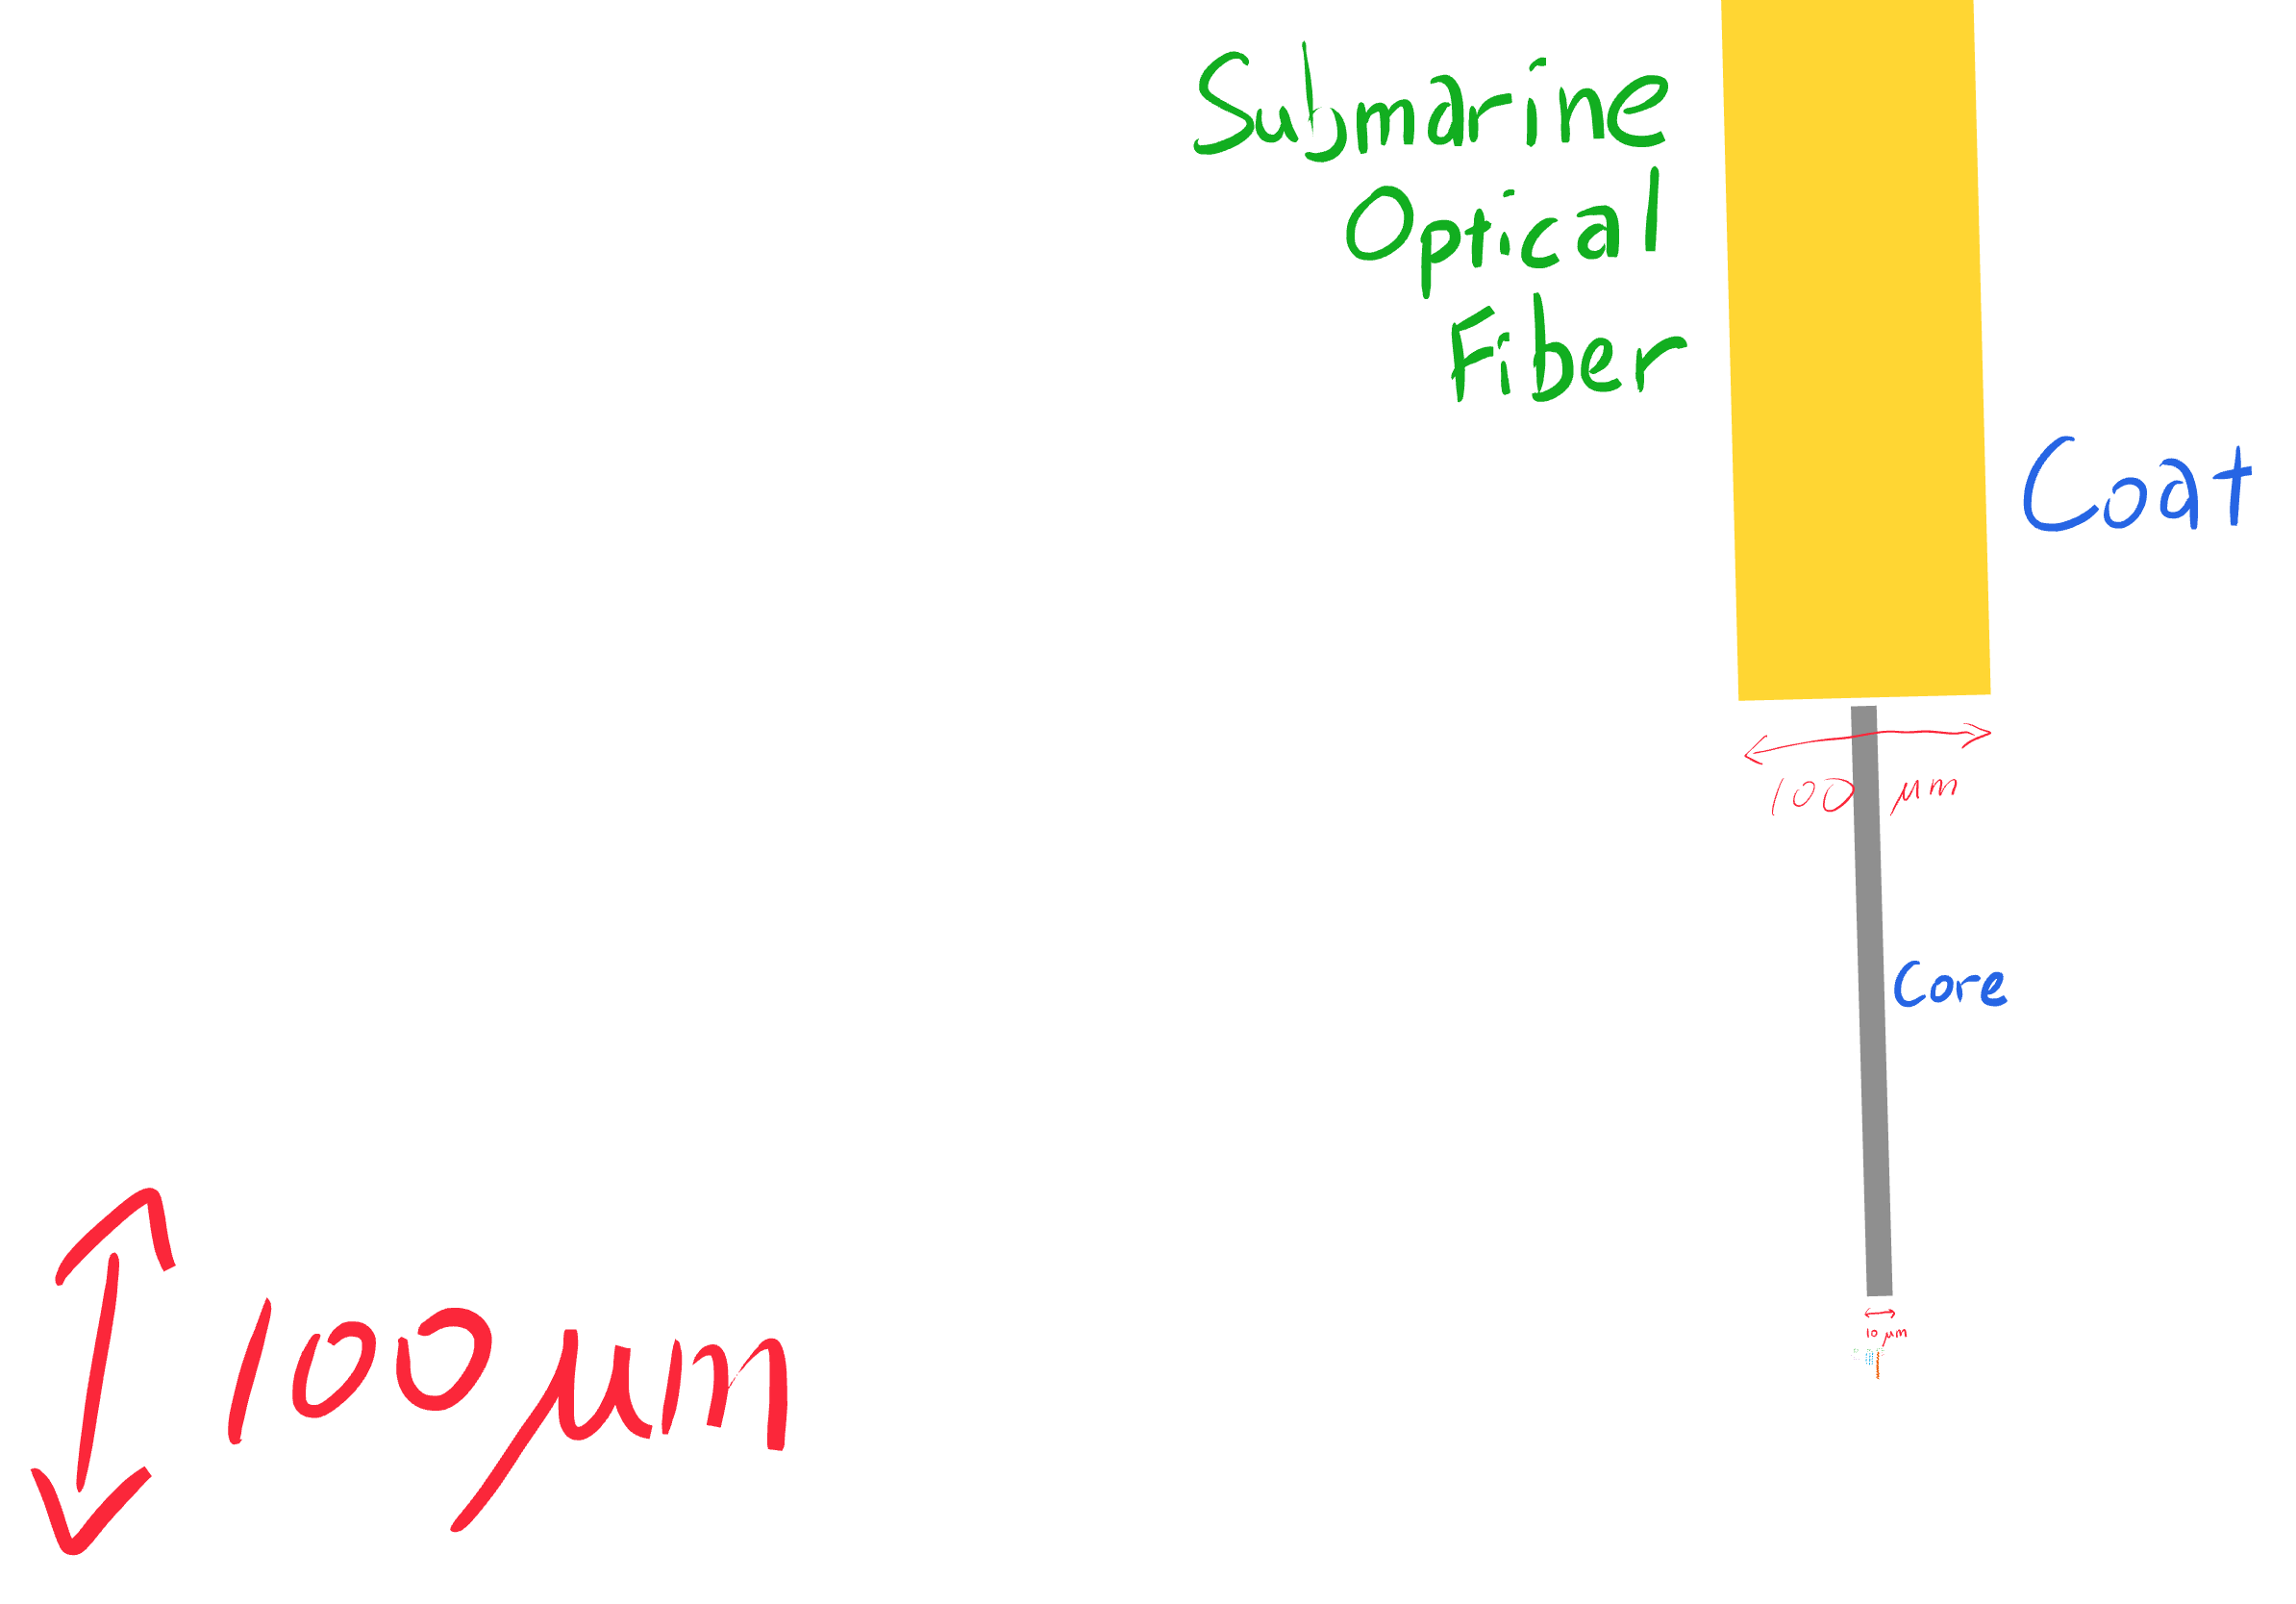 Submarine
Optical
Fiber
Coat
100 μm
Core
10 μm
100 μm